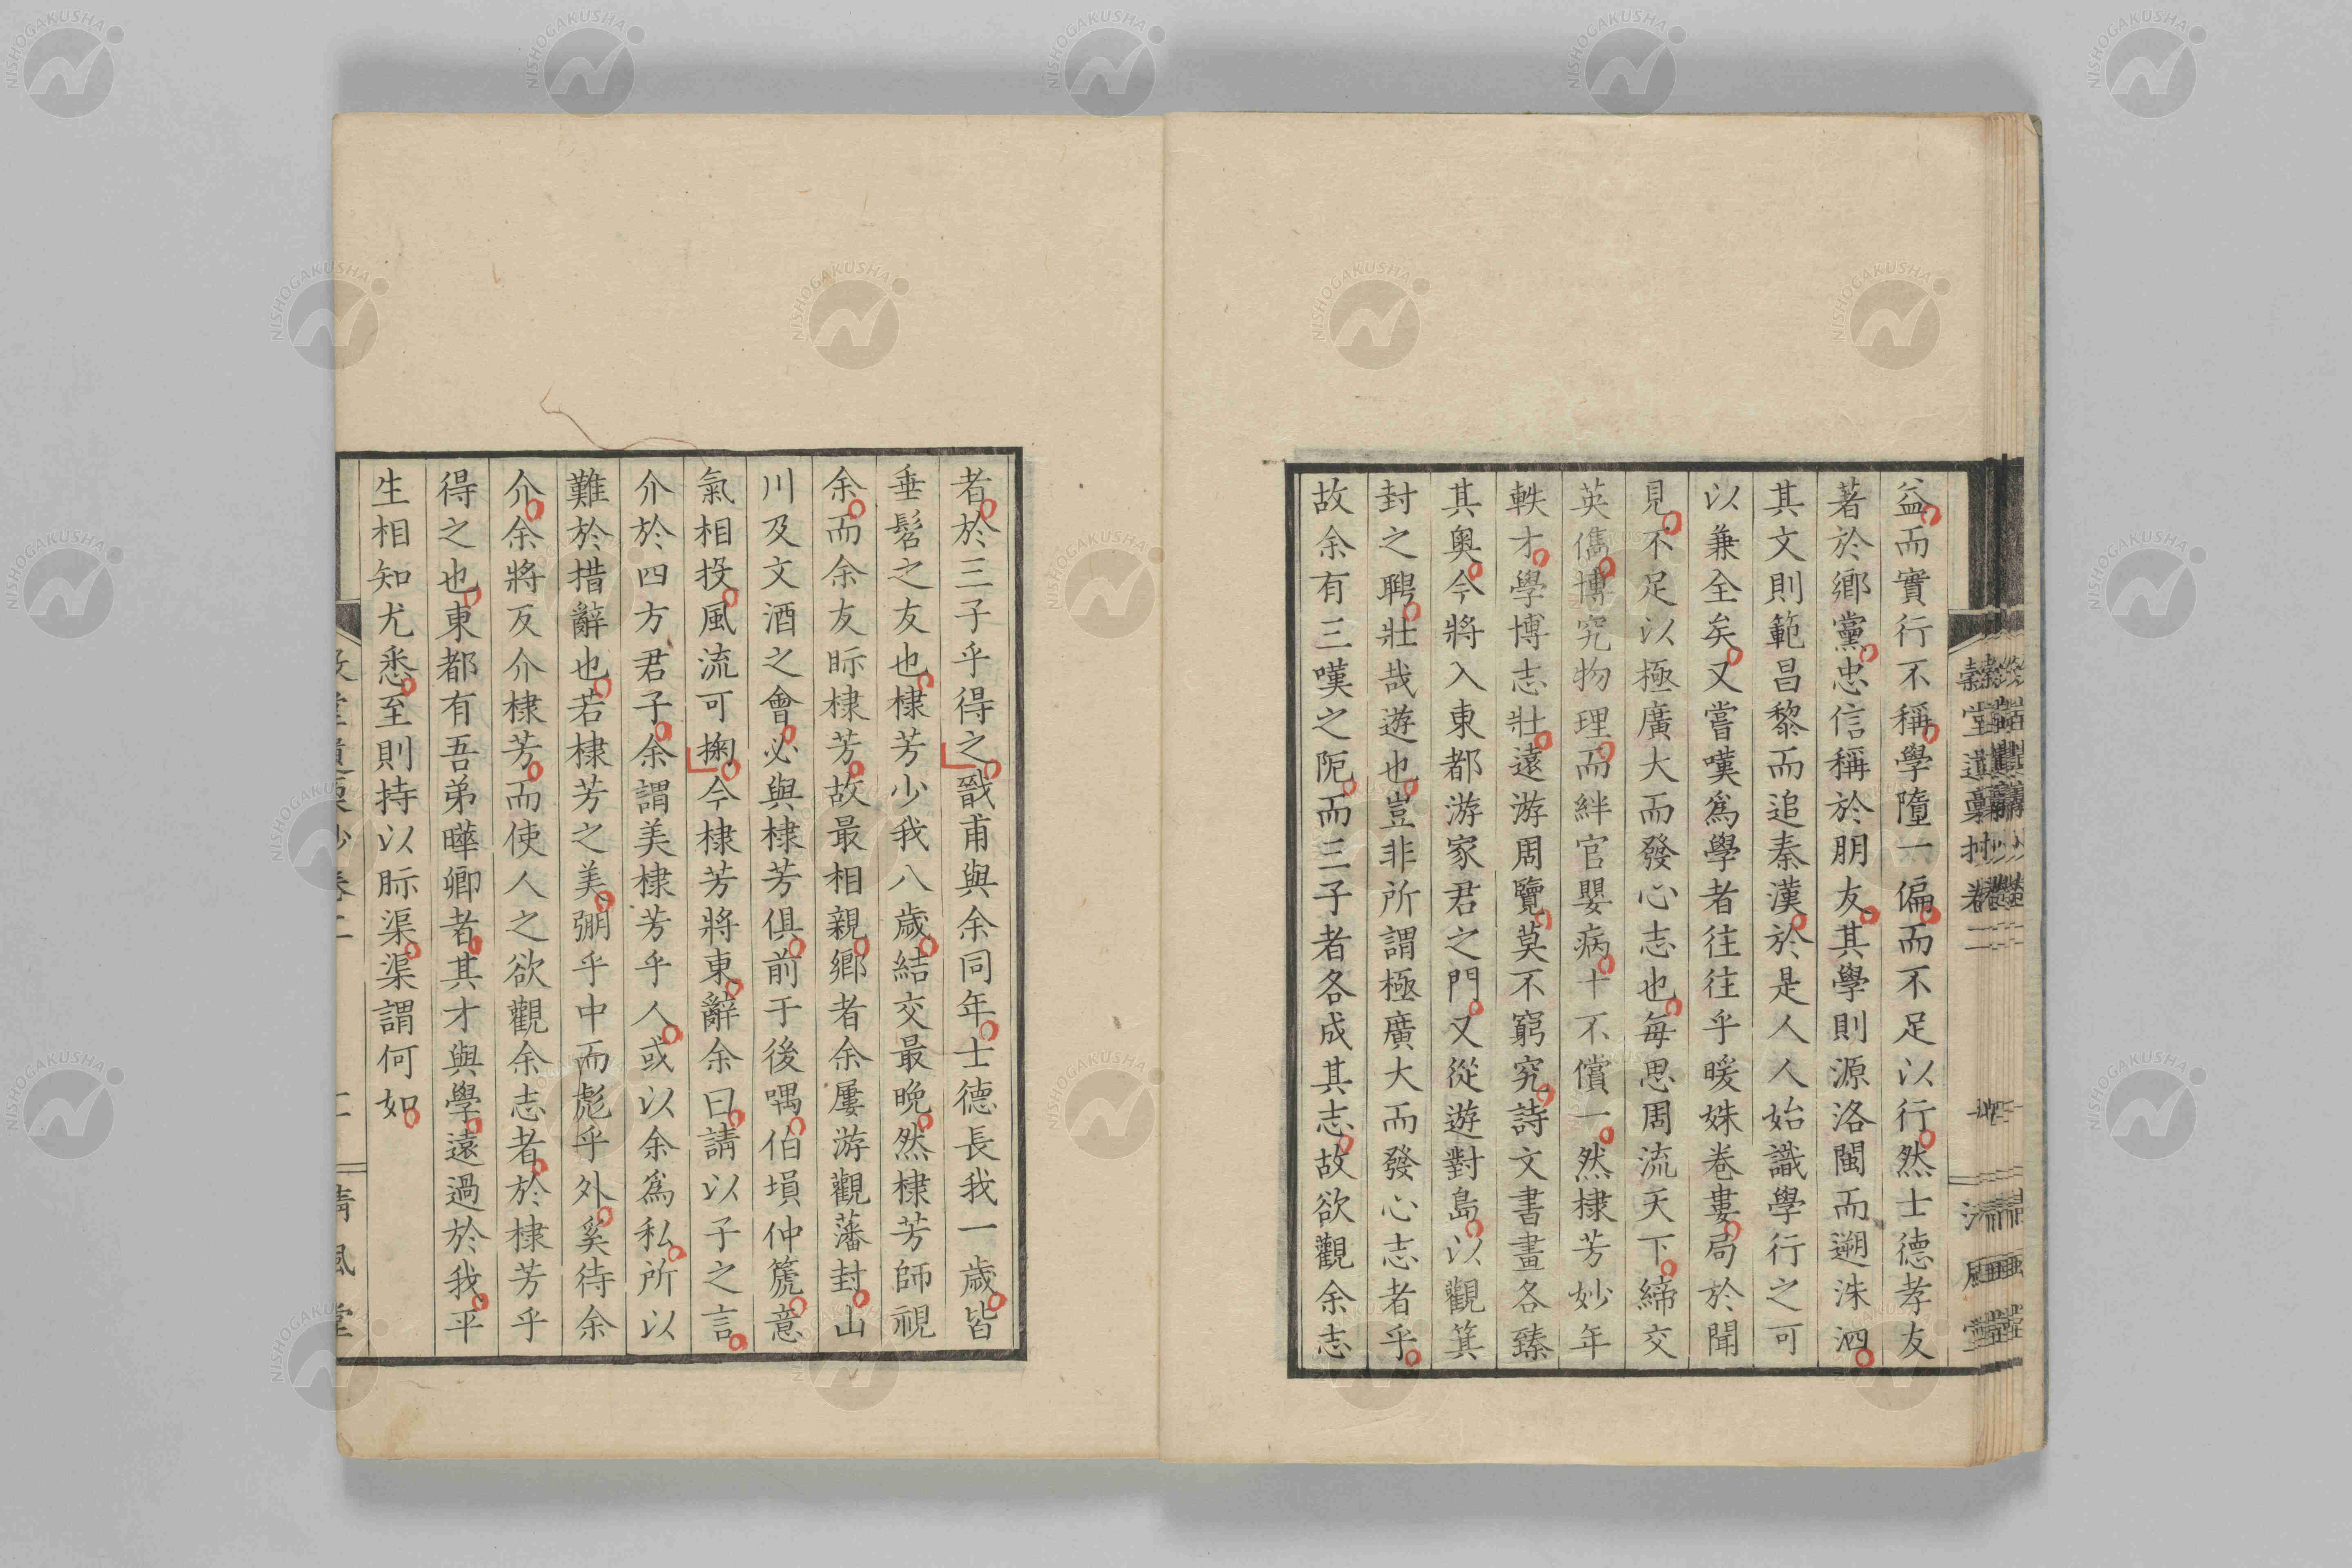 益而實行不稱學墮一偏而不足以行然士德孝友
著於鄉黨忠信稱於朋友其學則源洛閩而遡洙泗
其文則範昌黎而追秦漢於是人人始識學行之可
以兼全矣又嘗嘆爲學者往往乎暖姝卷婁局於聞
見不足以極廣大而發心志也每思周流天下締交
英儁博究物理而絆官嬰病十不償一然棣芳妙年
軼才學博志壯遠游周覽莫不窮究詩文書畫各臻
其奧今將入東都游家君之門又從遊對島以觀箕
封之聘壯哉遊也豈非所謂極廣大而發心志者乎
故余有三嘆之阨而三子者各成其志故欲觀余志
者於三子乎得之戩甫與余同年士德長我一歲皆
垂髫之友也棣芳少我八歲結交最晚然棣芳師視
余而余友眎棣芳故最相親鄉者余屢游觀藩封山
川及文酒之會必與棣芳俱前于後喁伯塤仲篪意
氣相投風流可掬今棣芳將東辭余曰請以子之言
介於四方君子余謂美棣芳乎人或以余爲私所以
難於措辭也若棣芳之美弸乎中而彪乎外奚待余
介余將反介棣芳而使人之欲觀余志者於棣芳乎
得之也東都有吾弟曄卿者其才與學遠過於我平
生相知尤悉至則持以眎渠渠謂何如
清風堂
NISHOGAKUSHA